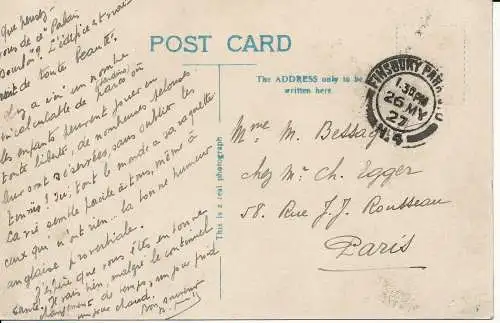 Que pensez-
vous de ce Palais
Bourbon? L'édifice est vrai-
ment de toute beauté.
Il y a ici un nombre
incalculable de parcs où
jardins
les enfants peuvent jouer en
toute liberté, de nombreuses pelouses
leur sont réservées, sans oublier les
tennis! Ici tout le monde a sa raquette
La vie semble facile à tous, même à
ceux qui n'ont rien... la bonne humeur
anglaise proverbiale.
J'espère que vous êtes en bonne
santé. Je vais bien, malgré le continuel
changement de temps, un jour froid
un jour chaud.
Bon souvenir
POST CARD
The ADDRESS only to be
written here.
This is a real photograph
FINSBURY PARK
1.30 PM
26 MY
27
N.4
Mme M. Bessag
chez Mr Ch. Egger
58. Rue J.J. Rousseau
Paris